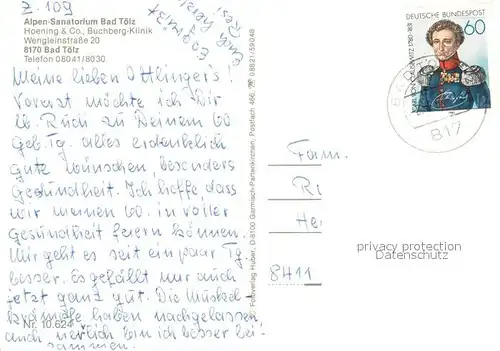 Z. 109
Alpen-Sanatorium Bad Tölz
Hoening & Co., Buchberg-Klinik
Wengleinstraße 20
8170 Bad Tölz
Telefon 08041/8030
Euch herzl.
Resi
Meine lieben Ottlinger's!
Vorerst möchte ich Dir
lb. Rudi zu Deinem 60
geb. Tg. alles erdenklich
gute wünschen, besonders
Gesundheit. Ich hoffe dass
wir meinen 60. in voller
Gesundheit feiern können.
Mir geht es seit ein paar Tg.
besser. Es gefällt mir auch
jetzt ganz gut. Die Muskel-
krämpfe haben nachgelassen
auch nervlich bin ich besser bei-
sammen.
Nr. 10.624
Huber, D-8100 Garmisch-Partenkirchen, Postfach 466, ☎ 08821/59048
DEUTSCHE BUNDESPOST
60
1780-1831
BAD
817
Fam.
R
He
8411
privacy protection
Datenschutz